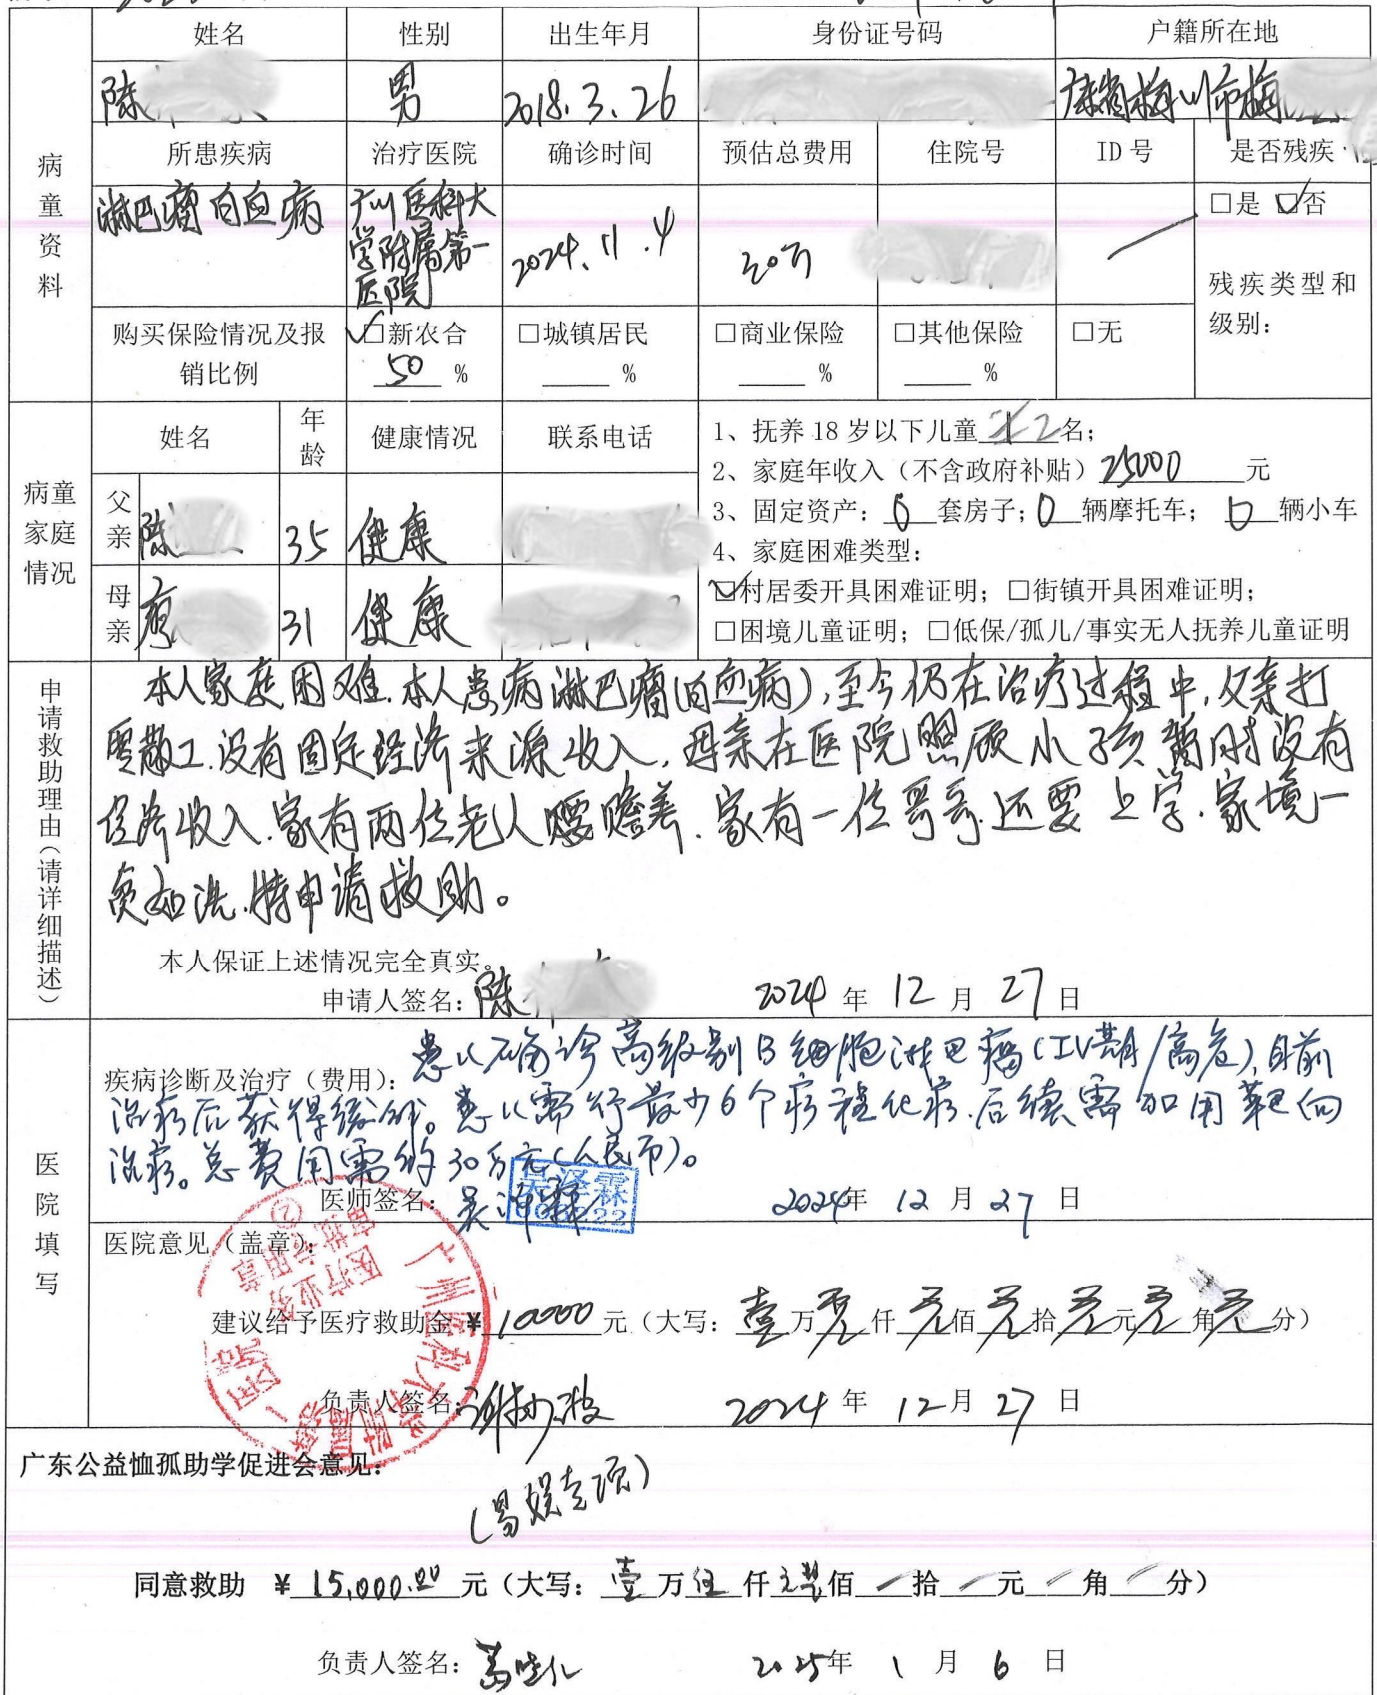 姓名 性别 出生年月 身份证号码 户籍所在地
陈 男 2018.3.26 梅州市梅
病童资料
所患疾病 治疗医院 确诊时间 预估总费用 住院号 ID号 是否残疾
淋巴瘤白血病 广州医科大学附属第一医院 2024.11.4 30万 □是 ☑否
残疾类型和级别：
购买保险情况及报销比例 ☑新农合 50 % □城镇居民 % □商业保险 % □其他保险 % □无
病童家庭情况
姓名 年龄 健康情况 联系电话
父亲 陈 35 健康
母亲 廖 31 健康
1、抚养18岁以下儿童 2名；
2、家庭年收入（不含政府补贴）25000元
3、固定资产：0套房子；0辆摩托车；0辆小车
4、家庭困难类型：
☑村居委开具困难证明；□街镇开具困难证明；
□困境儿童证明；□低保/孤儿/事实无人抚养儿童证明
申请救助理由（请详细描述）
本人家庭困难.本人患病淋巴瘤(白血病),至今仍在治疗过程中,父亲打
零散工.没有固定经济来源收入,母亲在医院照顾小孩暂时没有
经济收入.家有两位老人要赡养.家有一位哥哥还要上学.家境一
贫如洗.特申请救助。
本人保证上述情况完全真实。
申请人签名：陈 2024年12月27日
医院填写
疾病诊断及治疗（费用）：患儿确诊高级别B细胞淋巴瘤(IV期/高危),目前
治疗后获得缓解。患儿需行最少6个疗程化疗.后续需加用靶向
治疗。总费用需约30万元(人民币)。
医师签名：吴泽霖 2024年12月27日
吴泽霖
医院意见（盖章）：
广州医科大学附属第一医院
医疗业务
审批专用章
②
建议给予医疗救助金¥10000元（大写：壹万零仟零佰零拾零元零角零分）
负责人签名： 2024年12月27日
广东公益恤孤助学促进会意见：
同意救助 ¥15,000.00元（大写：壹万伍仟元整佰 拾 元 角 分）
负责人签名： 2025年1月6日